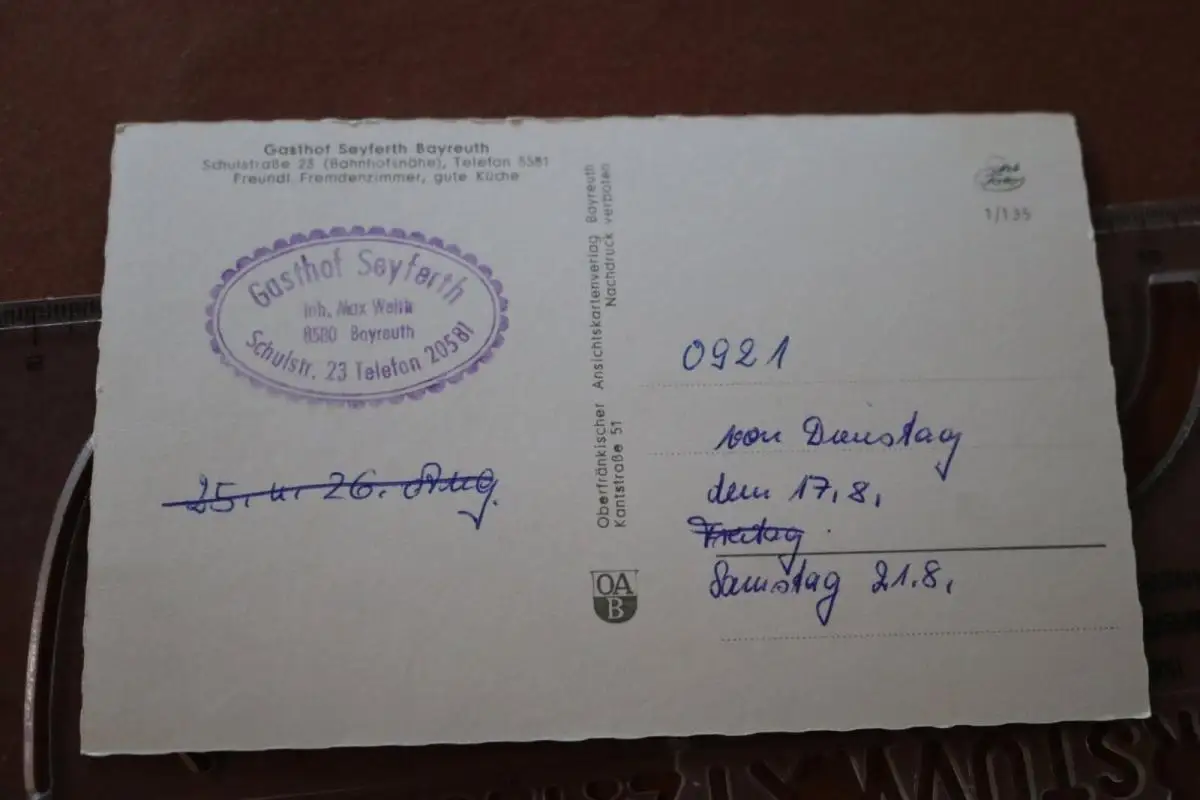 Gasthof Seyferth Bayreuth
Schulstraße 23 (Bahnhofsnähe), Telefon 5581
Freundl. Fremdenzimmer, gute Küche
Gasthof Seyferth
Inh. Max
8580 Bayreuth
Schulstr. 23 Telefon 20581
25. u. 26. Aug.
Oberfränkischer Ansichtskartenverlag Bayreuth
Kantstraße 51 Nachdruck verboten
OA
B
1/135
0921
von Dienstag
dem 17.8.
Freitag
Samstag 21.8.